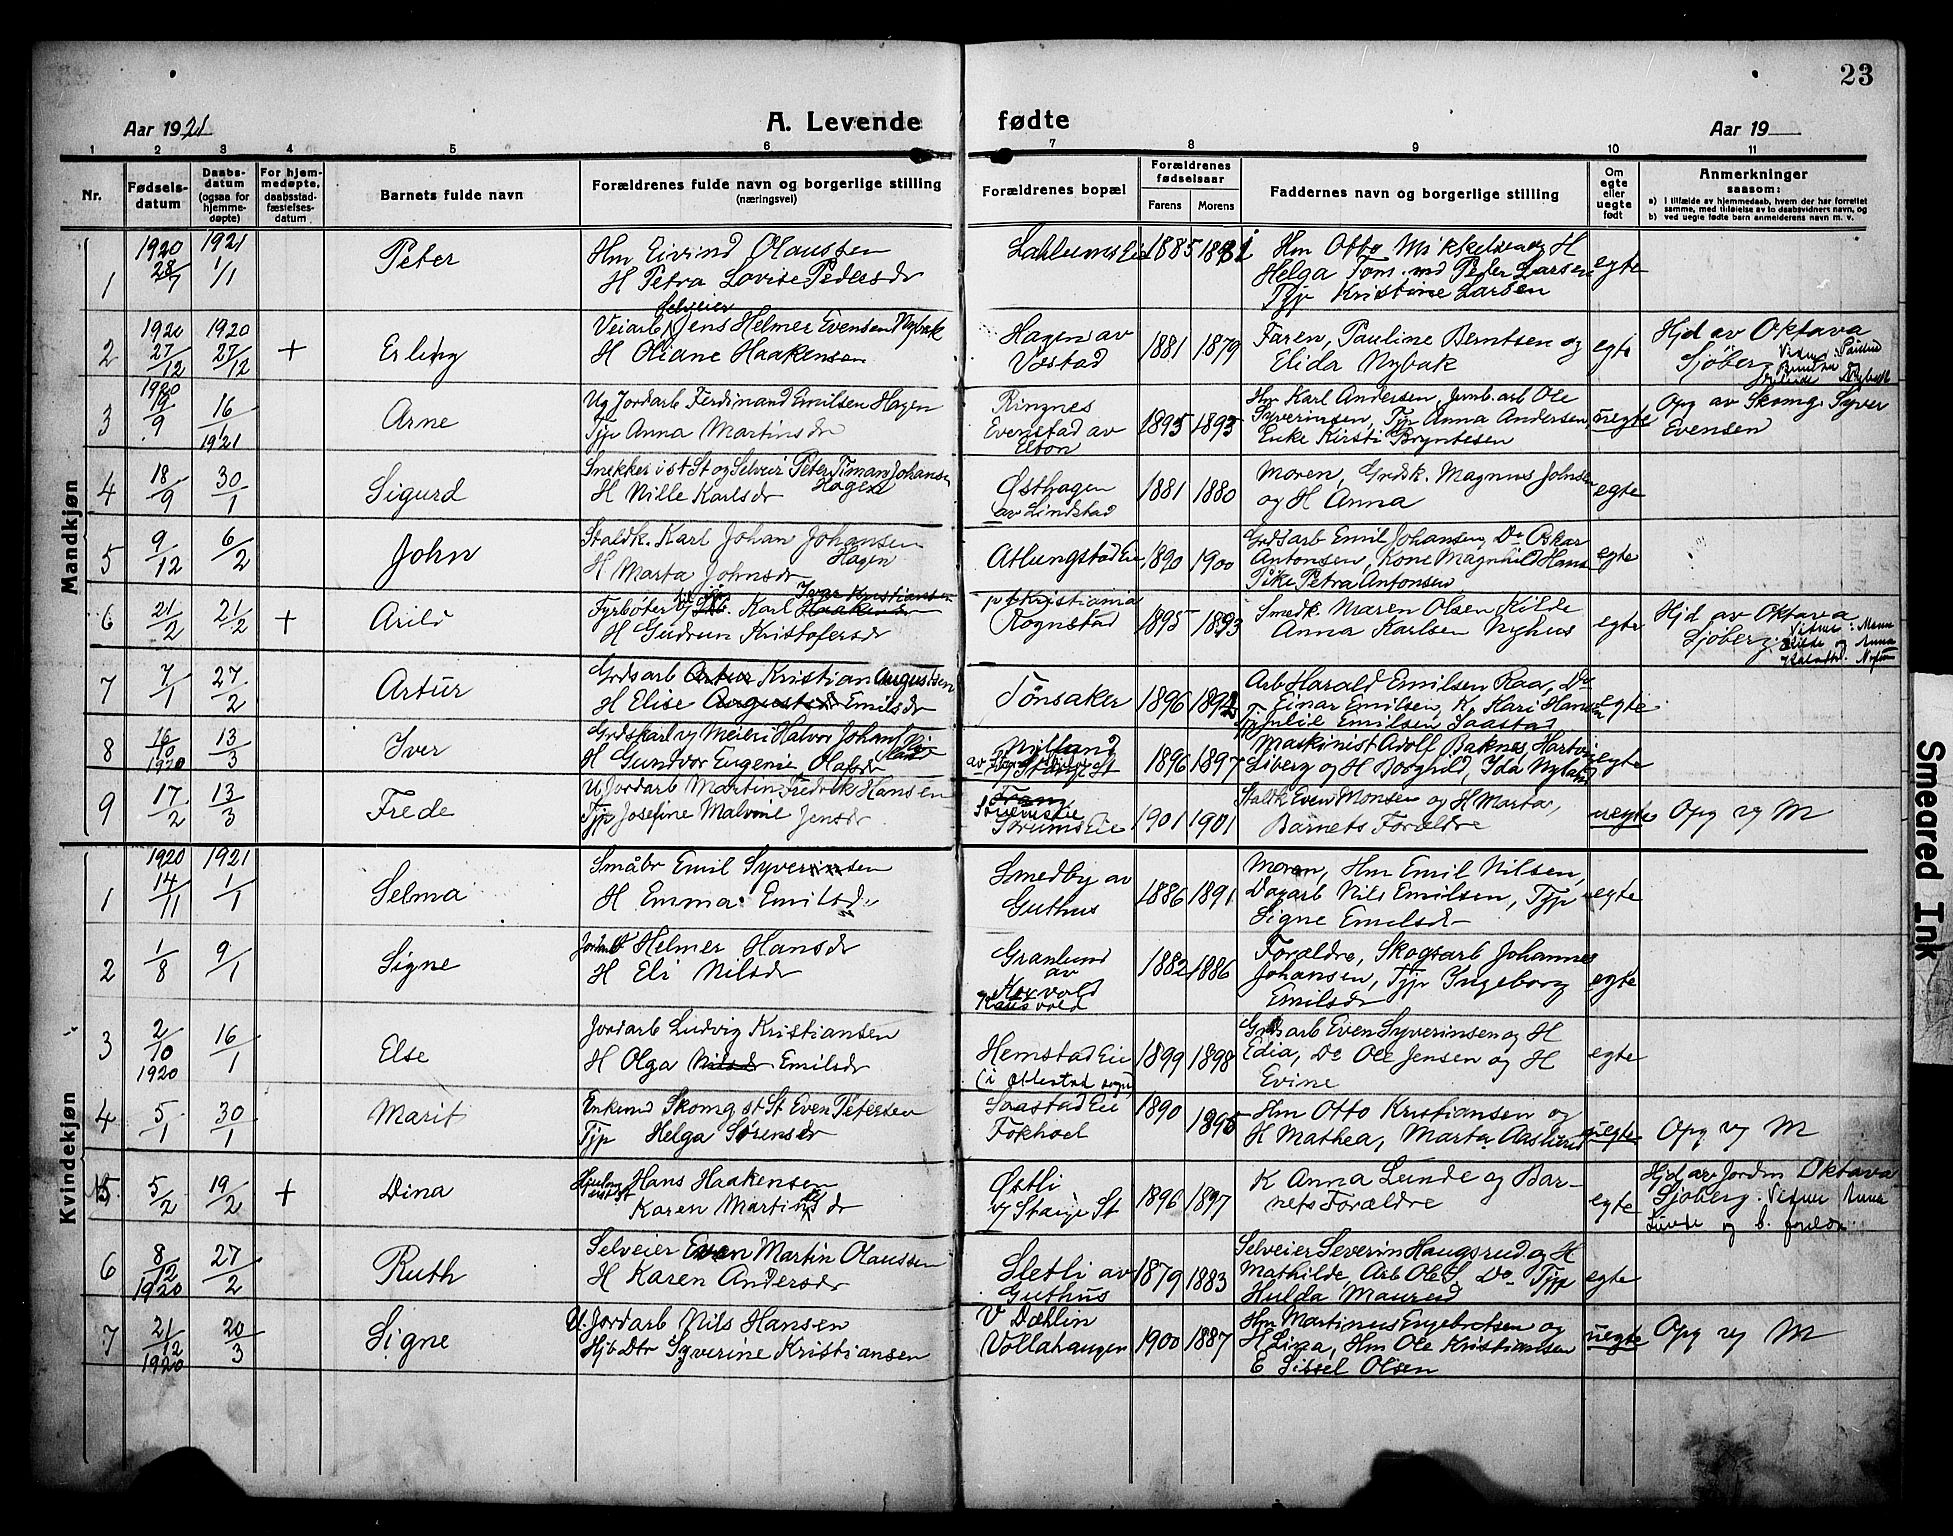 23
Aar 1921
A. Levende fødte
Aar 19
1 2 3 4 5 6 7 8 9 10 11
Nr.
Fødsels-
datum
Daabs-
datum
(ogsaa for
hjemme-
døpte)
For hjem-
medøpte,
daabsstad-
fæstelses-
datum
Barnets fulde navn
Forældrenes fulde navn og borgerlige stilling
(næringsvei)
Forældrenes bopæl
Forældrenes
fødselsaar
Farens Morens
Faddernes navn og borgerlige stilling
Om
egte
eller
uegte
født
Anmerkninger
saasom:
a) I tilfælde av hjemmedaab, hvem der har forrettet
samme, med tilføielse av to daabsvidners navn, og
b) ved uegte fødte barn anmelderens navn m. v.
Mandkjøn
1
1920
28/7
1921
1/1
Peter
Hm Eivind Olaussen
H Petra Lovise Pedersdr
1885
Hm Otto Mikkelsen og H
Helga Tom. md Peder Larsen
Tjp Kristine Larsen
egte
2
1920
27/12
1920
27/12
+
Erling
Selveier
Veiarb Jens Helmer Evensen Nybak
H Oliane Haakensen
Hagen av
Vestad
1881 1879
Faren, Pauline Berntsen og
Elida Nybak
egte
Hjd av Oktava
Sjøberg
Nybak
3
1920
19/9
16/1
1921
Arne
Ug Jordarb Ferdinand Emilsen Hagen
Tjp Anna Martinsdr
Ringnes
Evenstad av
1895 1895
Hm Karl Andersen, Jernb.arb Ole
Syverinsen, Tjp Anna Andersen,
Enke Kirsti Bryntesen
uegte
Opg av Skomg. Syver
Evensen
4
18/9
30/1
Sigurd
Snekker i st St og Selveier Peter Timan Johansen
Hagen
H Nille Karlsdr
Østhagen
av Lindstad
1881 1880
Moren, Grdsk. Magnus Johnsen
og H Anna
egte
5
9/12
6/2
John
Staldk. Karl Johan Johansen
Hagen
H Marta Johnsdr
Atlungstad Eie
1890 1900
Grdsarb Emil Johansen, Do Oskar
Antonsen, Kone Magnhild Hans
Pike Petra Antonsen
egte
6
21/2
21/2
+
Arild
Ivar Kristiansen
Fyrbøter Karl Haakensen
H Gudrun Kristofersdr
pt Kristiania
Rognstad
1895 1893
Smedk. Maren Olsen Kilde
Anna Karlsen Nyhus
egte
Hjd av Oktava
Sjøberg.
7
7/1
27/2
Artur
Grdsarb Artur Kristian Augustsen
H Elise Augustsdr Emilsdr
Tønsaker
1896
Arb Harald Emilsen Raa, Do
Einar Emilsen, K. Kari Hansen
Tjp Julie Emilsen Saastad
egte
8
16/10
1920
13/3
Iver
Grdskarl v/ Meieri Halvor Johans
H Gundvor Eugenie Olafsdr
Nylund
v/ Stange St
1896 1897
Maskinist Adolf Baknes, Hartvig
Liberg og H Borghild, Ida Nyland
egte
9
17/2
13/3
Frede
U Jordarb Martin Fredrik Hansen
Tjp Josefine Malvine Jensdr
Sørums Eie
1901 1901
Staldk Even Monsen og H Marta,
Barnets Forældre
uegte
Opg v M
Kvindekjøn
1
1920
14/11
1921
1/1
Selma
Småbr Emil Syverinsen
H Emma Emilsdr
Smedby av
Guthus
1886 1891
Moren, Hm Emil Nilsen,
Dagarb Nils Emilsen, Tjp
Signe Emilsdr
egte
2
1/8
9/1
Signe
Helmer Hansdr
H Eli Nilsdr
Granlund
av
Korvold
1882 1886
Forældre, Skogsarb Johannes
Johansen, Tjp Ingeborg
Emilsdr
egte
3
2/10
1920
16/1
Else
Jordarb Ludvig Kristiansen
H Olga Nilsdr Emilsdr
Hemstad Eie
(i Ottestad sogn)
1899 1898
Grdsarb Even Syverinsen og H
Edia, Do Ole Jensen og H
Evine
egte
4
5/1
30/1
Marit
Enkemd Skomg st St Even Petersen
Tjp Helga Sørensdr
Saastad Eie
Fokhoel
1890 1895
Hm Otto Kristiansen og
H Mathea, Marta Aaslund
uegte
Opg v M
5
5/2
19/2
+
Dina
Hans Haakensen
Karen Martinsdr
Østli
v/ Stange St
1896 1897
K Anna Lunde og Bar-
nets Forældre
egte
Hjd av Jordm Oktava
Sjøberg. Vidner Anna
Lunde og b. foreldr.
6
8/12
1920
27/2
Ruth
Selveier Even Martin Olaussen
H Karen Andersdr
Sletli av
Guthus
1879 1883
Selveier Severin Haugsrud og H
Mathilde, Arb Ole S. Do Tjp
Hulda Maurud
egte
7
21/12
1920
20/3
Signe
U. Jordarb Nils Hansen
Hjb Dtr Syverine Kristiansen
V Dæhlin
Vollahaugen
1900 1887
Hm Martinus Engebretsen og
H Lina, Hm Ole Kristiansen
E Sissel Olsen
uegte
Opg v M
Smeared Ink